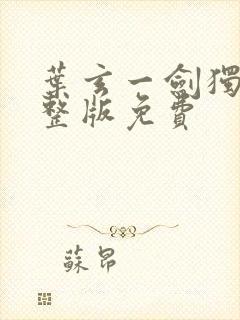 葉玄一劍獨
整版免費
蘇昂